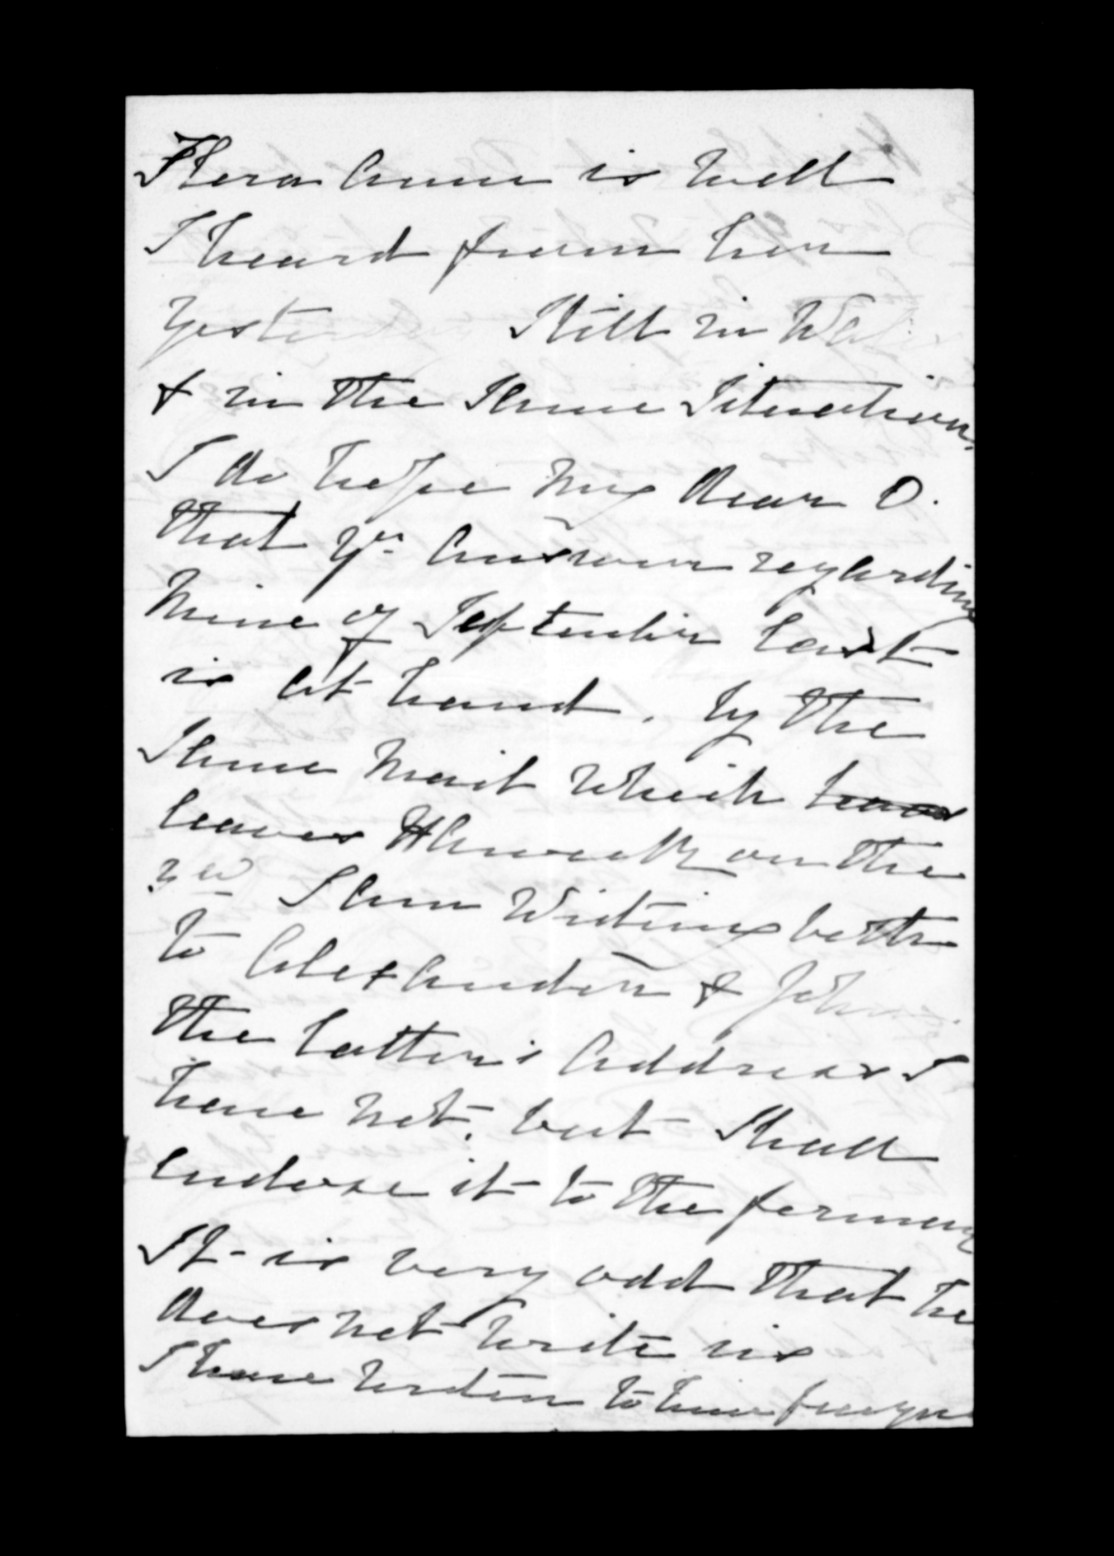 Flora Anne is well
I heard from her
yesterday Still in Wales
& in the Same Situation
I do hope my dear D.
that yr. answer regarding
mine of September last
is at hand. by the
Same Mail which
leaves on the
3rd I am Writing both
to Alexander & John
the latter's address I
have not, but Shall
enclose it to the former
It is very odd that he
does not write us
I have written to him